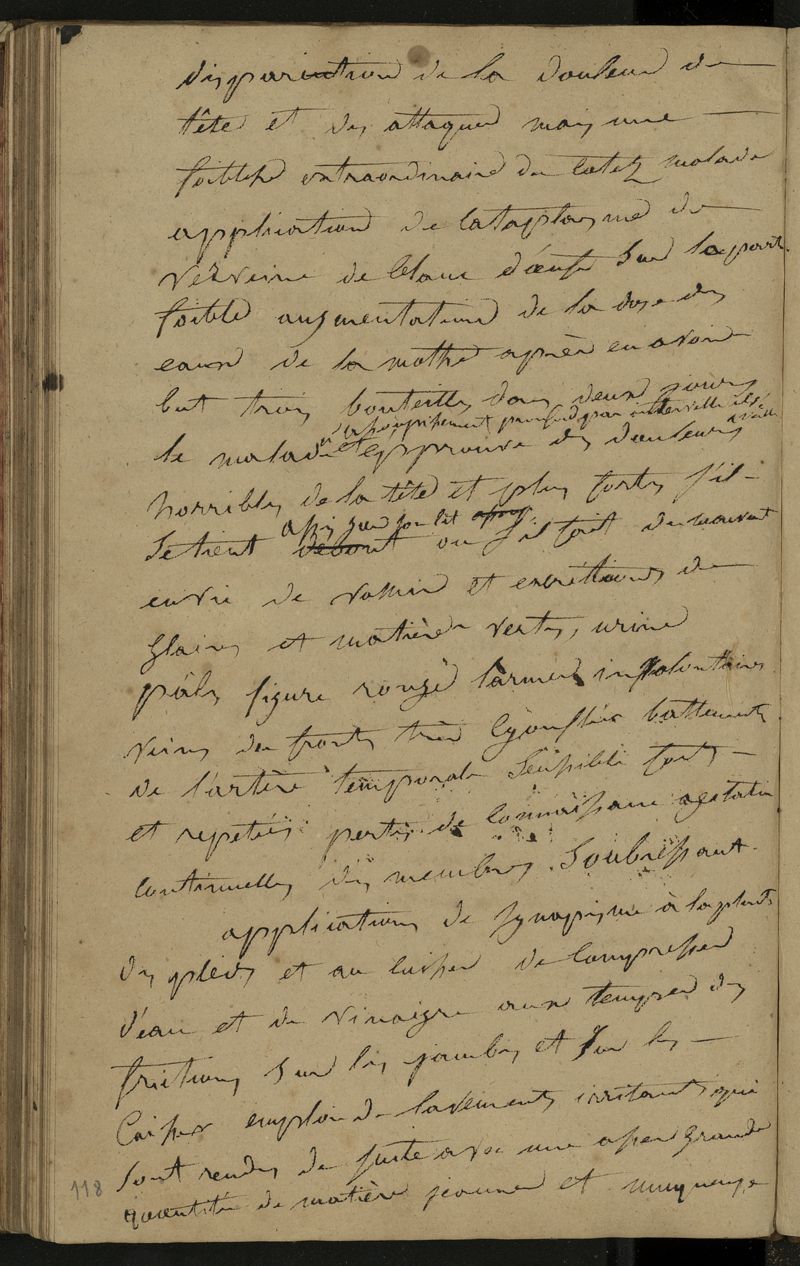 disparution de la douleur de
tête et des attaques mais une
foiblesse extraordinaire du coté malade
application de cataplasme de
verveine de blanc d'œufs sur la part.
foible augmentation de la dose des
eaux de la mothe après en avoir
but trois bouteilles dans deux jours
assoupissement profond par intervalle
le malade epprouve des douleurs
horribles de la tête et plus fortes s'il
assis sur son lit
se tient debout ou s'il fait du mouvement
envie de vomir et excrétions de
glaires et matière vertes, urine
pâle, figure rouge larmes involontaires
veines du front très gonflées battements
de l'artère temporale sensible forts
et repetées perte de connaissance agitation
continuelles des membres. Soubressaut
application de synapisme à la plante
des pieds et au cuisses de compresses
d'eau et de vinaigre aux tempes des
frictions sur les jambes et sur les
cuisses emploi de lavements irritants qui
sont rendus de suite avec une assez grande
quantité de matière jaune et muqueuse
118